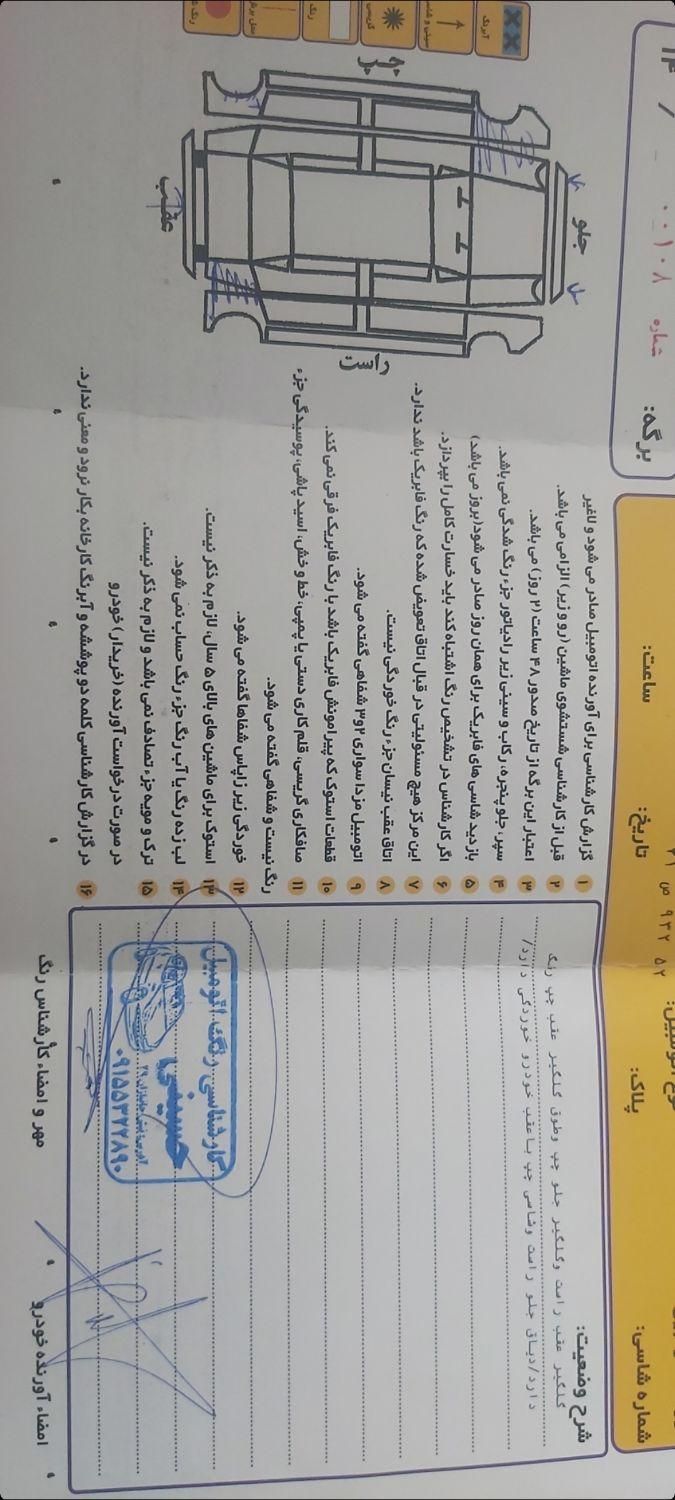 ۱۴ / - ۰۰۱۰۸ شماره
برگه:
ساعت:
تاریخ:
۵۲ ۹۳۲ ص ۲۱
پلاک:
شماره شاسی:
آبرنگ
رنگ
جلو
راست
عقب
چپ
۱ گزارش کارشناسی برای آورنده اتومبیل صادر می شود و لاغیر
۲ قبل از کارشناسی شستشوی ماشین (رو و زیر) الزامی می باشد.
۳ اعتبار این برگه از تاریخ صدور ۴۸ ساعت (۲ روز) می باشد.
۴ سپر، جلو پنجره، رکاب و سینی زیر رادیاتور جزء رنگ شدگی نمی باشد.
۵ بازدید شاسی های فابریک برای همان روز صادر می شود (بروز می باشد)
۶ اگر کارشناس در تشخیص رنگ اشتباه کند باید خسارت کامل را بپردازد.
۷ این مرکز هیچ مسئولیتی در قبال اتاق تعویض شده که رنگ فابریک باشد ندارد.
۸ اتاق عقب نیسان جزء رنگ خوردگی نیست.
۹ اتومبیل مزدا سواری ۲و۳ شفاهی گفته می شود.
۱۰ قطعات استوک که پیرامونش فابریک باشد با رنگ فابریک فرقی نمی کند.
۱۱ صافکاری گریسی، قلم کاری دستی یا پمپی، خط و خش، اسید پاشی، پوسیدگی جزء
رنگ نیست و شفاهی گفته می شود.
۱۲ خوردگی زیر زاپاس شفاها گفته می شود.
۱۳ استوک برای ماشین های بالای ۵ سال، لازم به ذکر نیست.
۱۴ لب زده رنگ یا آب رنگ جزء رنگ حساب نمی شود.
۱۵ ترک و مویه جزء تصادف نمی باشد و لازم به ذکر نیست.
در صورت درخواست آورنده (خریدار) خودرو
۱۶ در گزارش کارشناسی کلمه دو پوششه و آبرنگ کارخانه بکار نرود و معنی ندارد.
شرح وضعیت:
گلگیر عقب راست وگلگیر جلو چپ وطوق گلگیر عقب چپ رنگ
دارد/دیاق جلو راست وشاسی چپ باعقب خودرو خوردگی دارد/
کارشناسی رنگ اتومبیل
حسینی
۰۹۱۵۵۳۲۲۸۹۰
مهر و امضاء کارشناس رنگ
امضاء آورنده خودرو